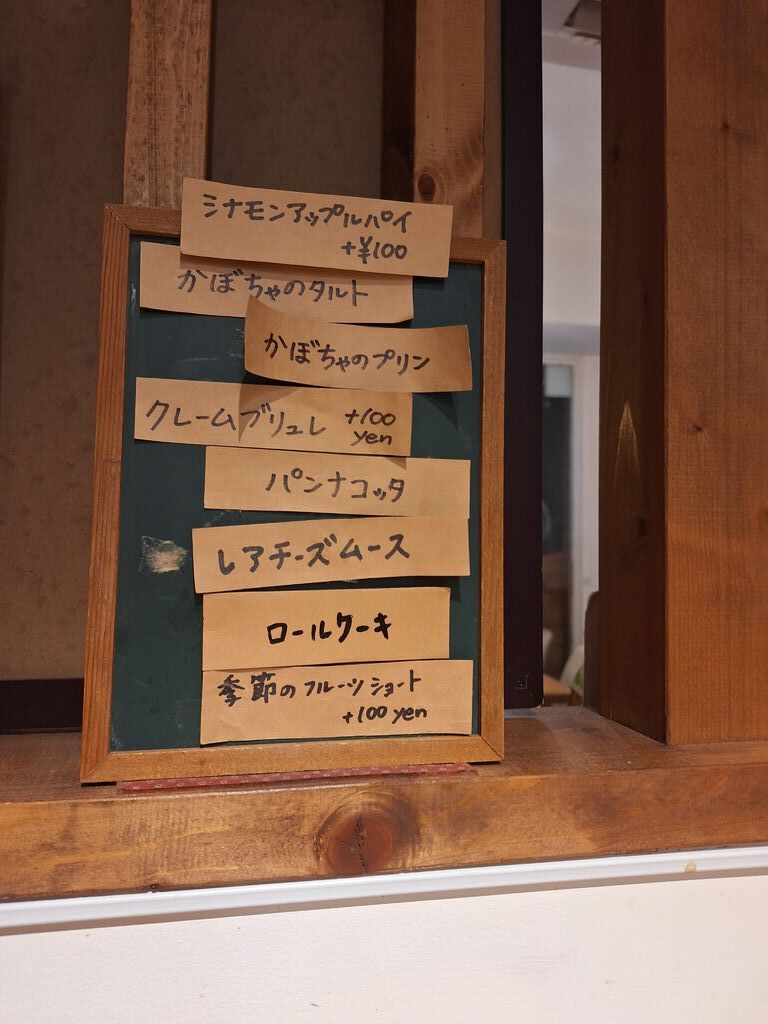 シナモンアップルパイ
+¥100
かぼちゃのタルト
かぼちゃのプリン
クレームブリュレ +100
yen
パンナコッタ
レアチーズムース
ロールケーキ
季節のフルーツショート
+100 yen